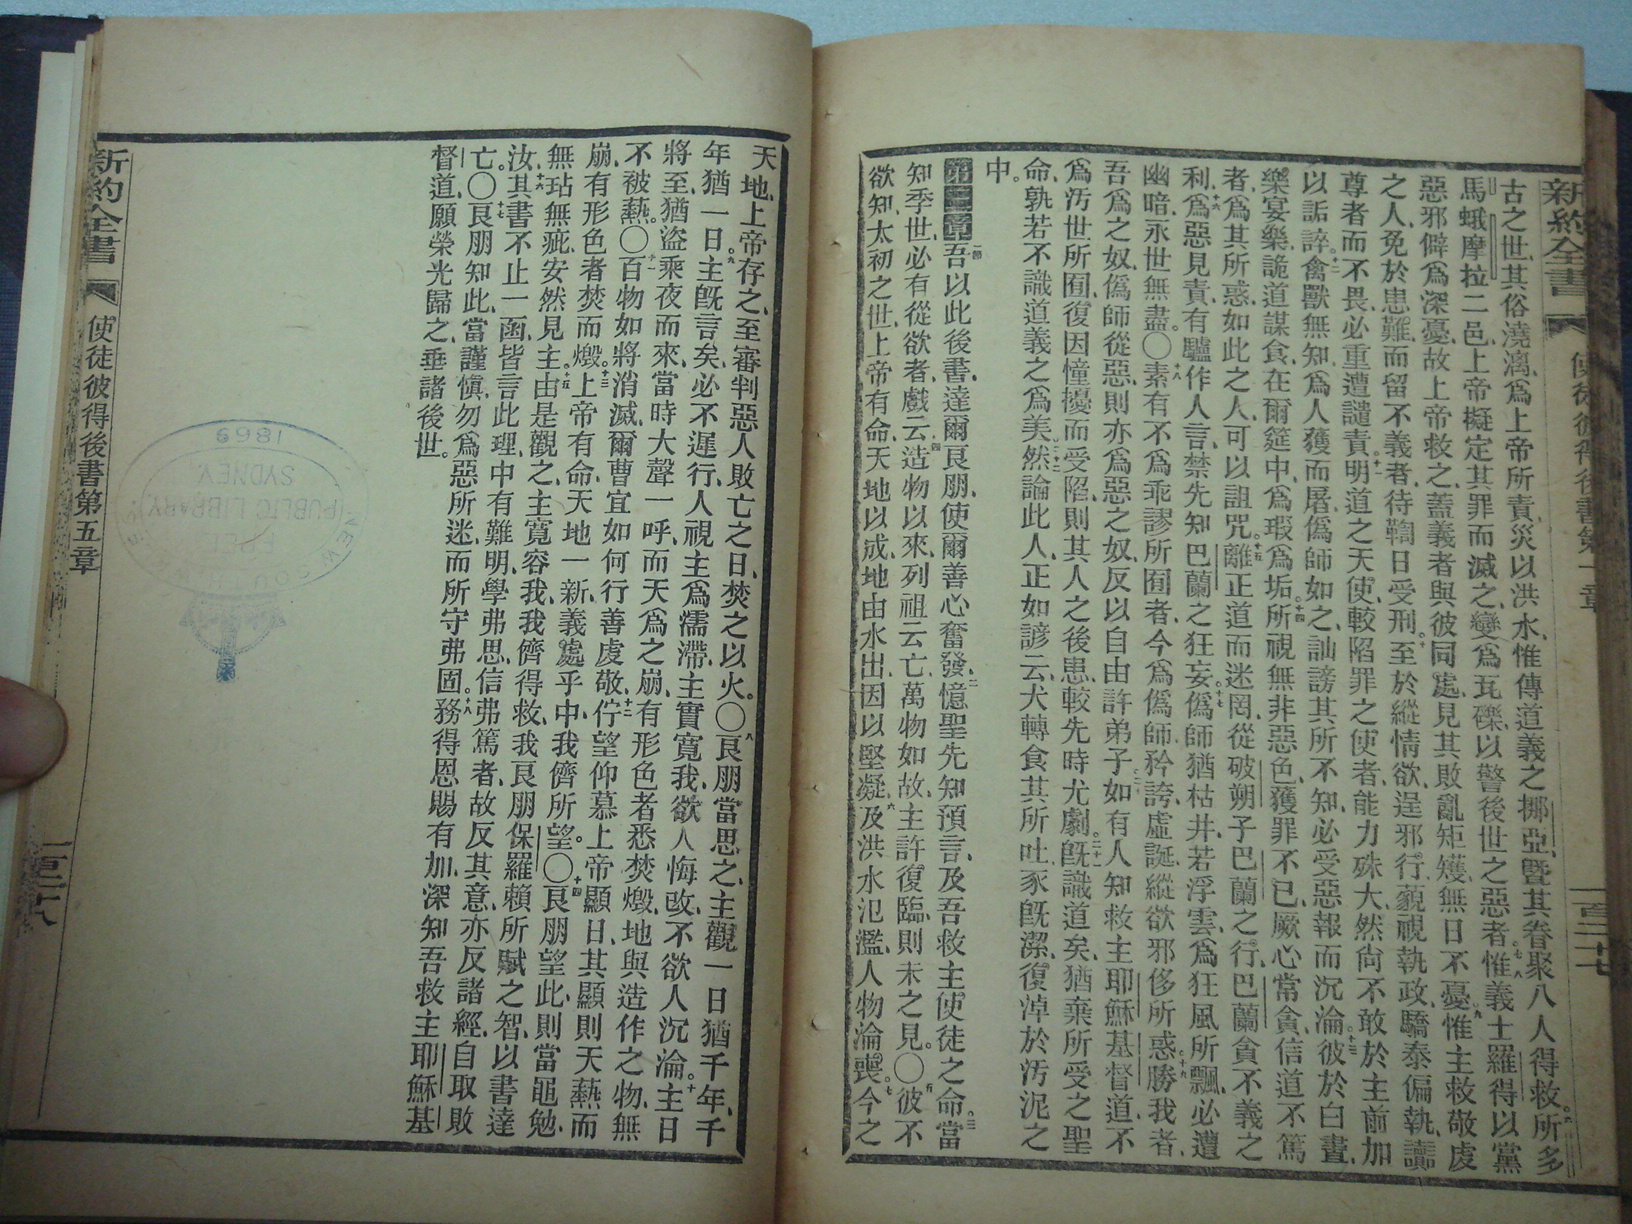 新約全書
使徒彼得後書第一章
一百二十七
古之世、其俗澆漓、爲上帝所責、災以洪水、惟傳道義之挪亞、暨其眷聚八人得救、所多
馬蛾摩拉二邑、上帝擬定其罪而滅之、變爲瓦礫、以警後世之惡者、惟義士羅得以黨
惡邪僻爲深憂、故上帝救之、蓋義者與彼同處、見其敗亂矩矱、無日不憂、惟主救敬虔
之人、免於患難、而留不義者、待鞫日受刑、至於縱情欲、逞邪行、藐視執政、驕泰偏執、讟
尊者而不畏、必重遭譴責、明道之天使、較陷罪之使者、能力殊大、然尙不敢於主前加
以詬誶、禽獸無知、爲人獲而屠、僞師如之、訕謗其所不知、必受惡報而沉淪、彼於白晝
樂宴樂、詭道謀食、在爾筵中、爲瑕爲垢、所視無非惡色、獲罪不已、厥心常貪、信道不篤
者、爲其所惑、如此之人、可以詛咒、離正道而迷罔、從破朔子巴蘭之行、巴蘭貪不義之
利、爲惡見責、有驢作人言、禁先知巴蘭之狂妄、僞師猶枯井、若浮雲、爲狂風所飄、必遭
幽暗、永世無盡、〇素有不爲乖謬所囿者、今爲僞師矜誇虛誕、縱欲邪侈所惑、勝我者、
吾爲之奴、僞師從惡、則亦爲惡之奴、反以自由許弟子、如有人知救主耶穌基督道、不
爲汚世所囿、復因憧擾而受陷、則其人之後患、較先時尤劇、旣識道矣、猶棄所受之聖
命、孰若不識道義之爲美、然論此人、正如諺云、犬轉食其所吐、豕旣潔、復淖於汚泥之
中。
第三章 吾以此後書、達爾良朋、使爾善心奮發、憶聖先知預言、及吾救主使徒之命、當
知季世、必有從欲者、戲云、造物以來、列祖云亡、萬物如故、主許復臨、則未之見。〇彼不
欲知太初之世、上帝有命、天地以成、地由水出、因以堅凝、及洪水氾濫、人物淪喪、今之
天地、上帝存之、至審判惡人敗亡之日、焚之以火。〇良朋當思之、主觀一日猶千年、千
年猶一日、主旣言矣、必不遲行、人視主爲濡滯、主實寬我、欲人悔改、不欲人沉淪。主日
將至、猶盜乘夜而來、當時大聲一呼、而天爲之崩、有形色者悉焚燬、地與造作之物、無
不被爇。〇百物如將消滅、爾曹宜如何行善虔敬、佇望仰慕上帝顯日、其顯則天爇而
崩、有形色者焚而燬、上帝有命、天地一新、義處乎中、我儕所望。〇良朋望此、則當黽勉、
無玷無疵、安然見主、由是觀之、主寬容我、我儕得救、我良朋保羅賴所賦之智、以書達
汝、其書不止一函、皆言此理、中有難明、學弗思、信弗篤者、故反其意、亦反諸經、自取敗
亡。〇良朋知此、當謹愼、勿爲惡所迷、而所守弗固、務得恩賜有加、深知吾救主耶穌基
督道、願榮光歸之、垂諸後世。
新約全書
使徒彼得後書第五章
一百二十八
NEW SOUTH WALES
FREE
(PUBLIC LIBRARY)
SYDNEY
1869